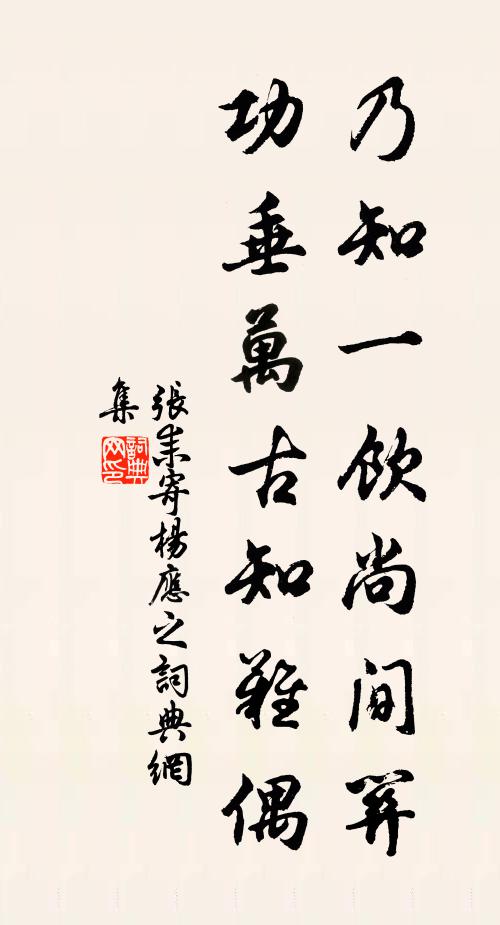 乃知一飲尚間關
功垂萬古知難偶
張耒寄楊應之詞典網
集
詞典网印